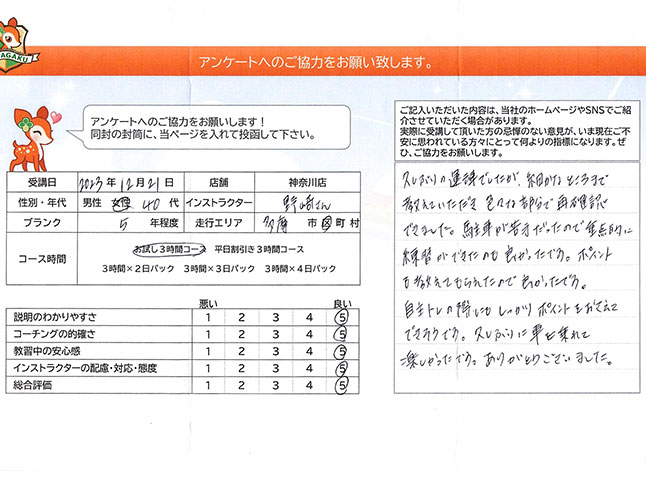 AGAKU
アンケートへのご協力をお願い致します。
アンケートへのご協力をお願いします！
同封の封筒に、当ページを入れて投函して下さい。
受講日 2023年12月21日 店舗 神奈川店
性別・年代 男性 女性 40代 インストラクター 野崎さん
ブランク 5 年程度 走行エリア 多摩 市 区 町 村
コース時間 お試し3時間コース 平日割引き3時間コース
3時間×2日パック 3時間×3日パック 3時間×4日パック
悪い 良い
説明のわかりやすさ 1 2 3 4 5
コーチングの的確さ 1 2 3 4 5
教習中の安心感 1 2 3 4 5
インストラクターの配慮・対応・態度 1 2 3 4 5
総合評価 1 2 3 4 5
ご記入いただいた内容は、当社のホームページやSNSでご紹
介させていただく場合があります。
実際に受講して頂いた方の忌憚のない意見が、いま現在ご不
安に思われている方々にとって何よりの指標になります。ぜ
ひ、ご協力をお願いします。
久しぶりの運転でしたが、細かなところまで
教えていただき 色々な部分で再確認が
できました。駐車が苦手だったので重点的に
練習ができたのも良かったです。ポイント
も教えてもらえたので良かったです。
自主トレの際にもしっかりポイントをおさえて
できそうです。久しぶりに車に乗れて
楽しかったです。ありがとうございました。